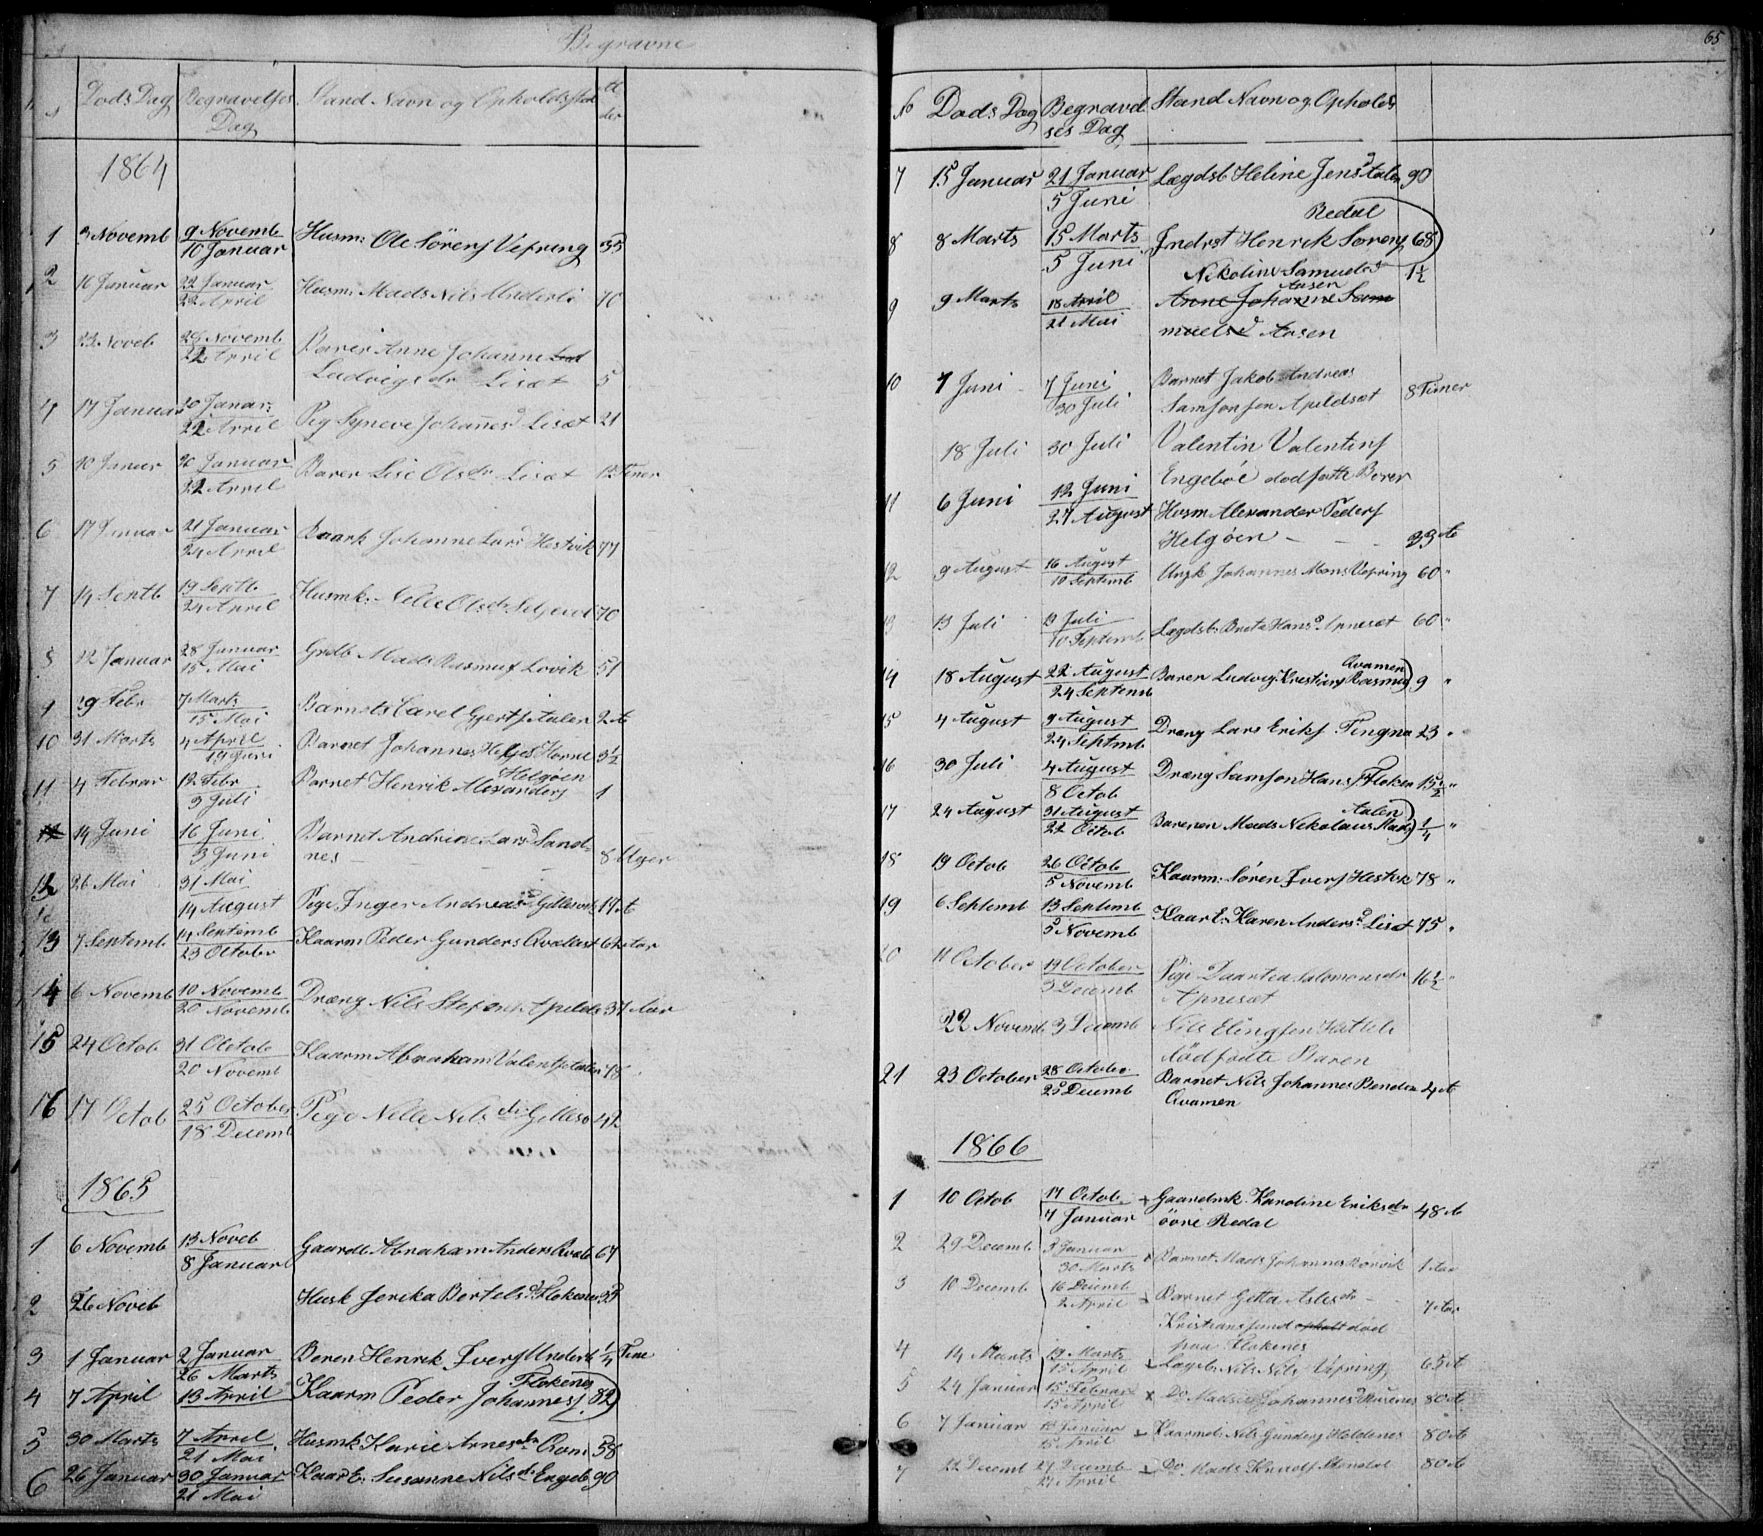 Begravne
Døds Dag Begravelses Dag Stand Navn og Opholdssted Al der
1864
1 3 Novemb 9 Novemb / 10 Januar Husm: Ole Sørens Vefring 35
2 16 Januar 22 Januar / 22 April Husm: Mads Nils Underli 70
3 23 Noveb 29 Novemb / 22 April Baren Anne Johanne
Ludvigsdr Lisæt 5
4 17 Januar 20 Januar / 22 April Pig Syneve Johannesd Lisæt 21
5 10 Januar 20 Januar / 22 April Baren Lise Olsdr Lisæt 12 Timer
6 17 Januar 21 Januar / 24 April Kaark Johanne Larsd Hestvik 77
7 14 Septb 19 Septb / 24 April Husmk: Nille Olsdr 70
8 22 Januar 28 Januar / 15 Mai Grdb Mads Rasmus Lovik 51
9 29 Febr 7 Marts / 15 Mai Barnets Carel Gjerts Aalen 2 Ar
10 31 Marts 4 April / 19 Juni Barnet Johannes Helges Horne 3½
11 4 Februar 12 Febr / 3 Juli Barnet Henrik Alexanders Helgøen 1
14 Juni 16 Juni / 3 Juni Barnet Andrine Larsd Sand-
nes 8 Uger
12 26 Mai 31 Mai / 14 August Pige Inger Andreasd 17 Ar
13 7 Septemb 14 Septemb / 23 October Kaarm Peder Gunders 62 Aar
14 6 Novemb 10 Novemb / 20 Novemb Dræng Nils Stefens 37 Aar
15 24 Octob 31 Octob / 20 Novemb Kaarm Abraham Valents 78
16 17 Octob 25 October / 18 Decemb Pige Nille Nilsdr 42
1865
1 6 Novemb 13 Noveb / 8 Januar Gaardb Abraham Anders 67
2 26 Noveb Husk Jerika Bertelsd Flokenes 33
3 1 Januar 2 Januar / 26 Marts Baren Henrik Ivers Underli ¼ Time
4 7 April 13 April Kaarm Peder Johannes Flokenes 82
5 30 Marts 7 April / 21 Mai Husmk Karie Arnesdr 58
6 26 Januar 30 Januar / 21 Mai KaarE: Susanne Nilsdr Engeb 90
65
No Døds Dag Begravel ses Dag Stand Navn og Opholds
7 15 Januar 21 Januar / 5 Juni Lægdsb Heline Jensd Aalen 90
8 8 Marts 15 Marts / 5 Juni Indrst Henrik Sørens Redal 68
Nikoline Samuelsd Aasen 1½
9 9 Marts 18 April / 21 Mai Anne Johanne Sam
muelsd Aasen
10 7 Juni 7 Juni / 30 Juli Barnet Jakob Andreas
Samsonsen Apeldsæt 8 Timer
18 Juli 30 Juli Valentin Valentins
Engebøe dødfødte Baren
11 6 Juni 12 Juni / 27 August Husm Alexander Peders
Helgøen 33 Ar
12 9 August 16 August / 10 Septemb Ungk Johannes Mons Vefring 60 "
13 13 Juli Juli / 10 Septemb Lægdsb: Brita Hansd Apnesæt 60 "
14 18 August 22 August / 24 Septemb Baren Ludvig Kristians Rasmus Qvamen 9 "
15 4 August 9 August / 24 Septemb Dræng Lars Eriks Tingna 23 "
16 30 Juli 4 August / 8 Octob Dræng Samson Hans Floken 15½ "
17 24 August 31 August / 22 Octob Barenen Mads Nikolaus Mads Aalen ¼ "
18 19 Octob 26 Octob / 5 Novemb Kaarm: Søren Ivers Hestvk 78 "
19 6 Septemb 13 Septemb / 5 Novemb KaarE: Karen Andersd Lisæt 75 "
20 11 October 19 October / 3 Decemb Pige Daartea Salomonsdr
Apnesæt 16½ "
22 Novemb 3 Decemb Nils Elingsen
dødfødte Baren
21 23 October 28 October / 25 Decemb Barnet Nils Johannes
Qvamen 4 Ar
1866
1 10 Octob 17 Octob / 7 Januar + Gaardmk Karoline Eriksdr
øvre Redal 48 Ar
2 29 Decemb 3 Januar / 30 Marts Barnet Mads Johannes 1 Aar
3 10 Decemb 16 Decemb / 2 April Barnet Gitta
Kristiansund død
paa Flokenes 7 Aar
4 14 Marts 19 Marts / 15 April Lægds Nils Nils Vefring 65 Ar
5 24 Januar 15 Februar / 15 April x Do Madsd Johannesd 80 Ar
6 7 Januar 13 Januar / 15 April Kaarmd: Nils Gunders 80 Ar
7 22 Decemb 27 Decemb / 22 April Do Mads 80 Ar